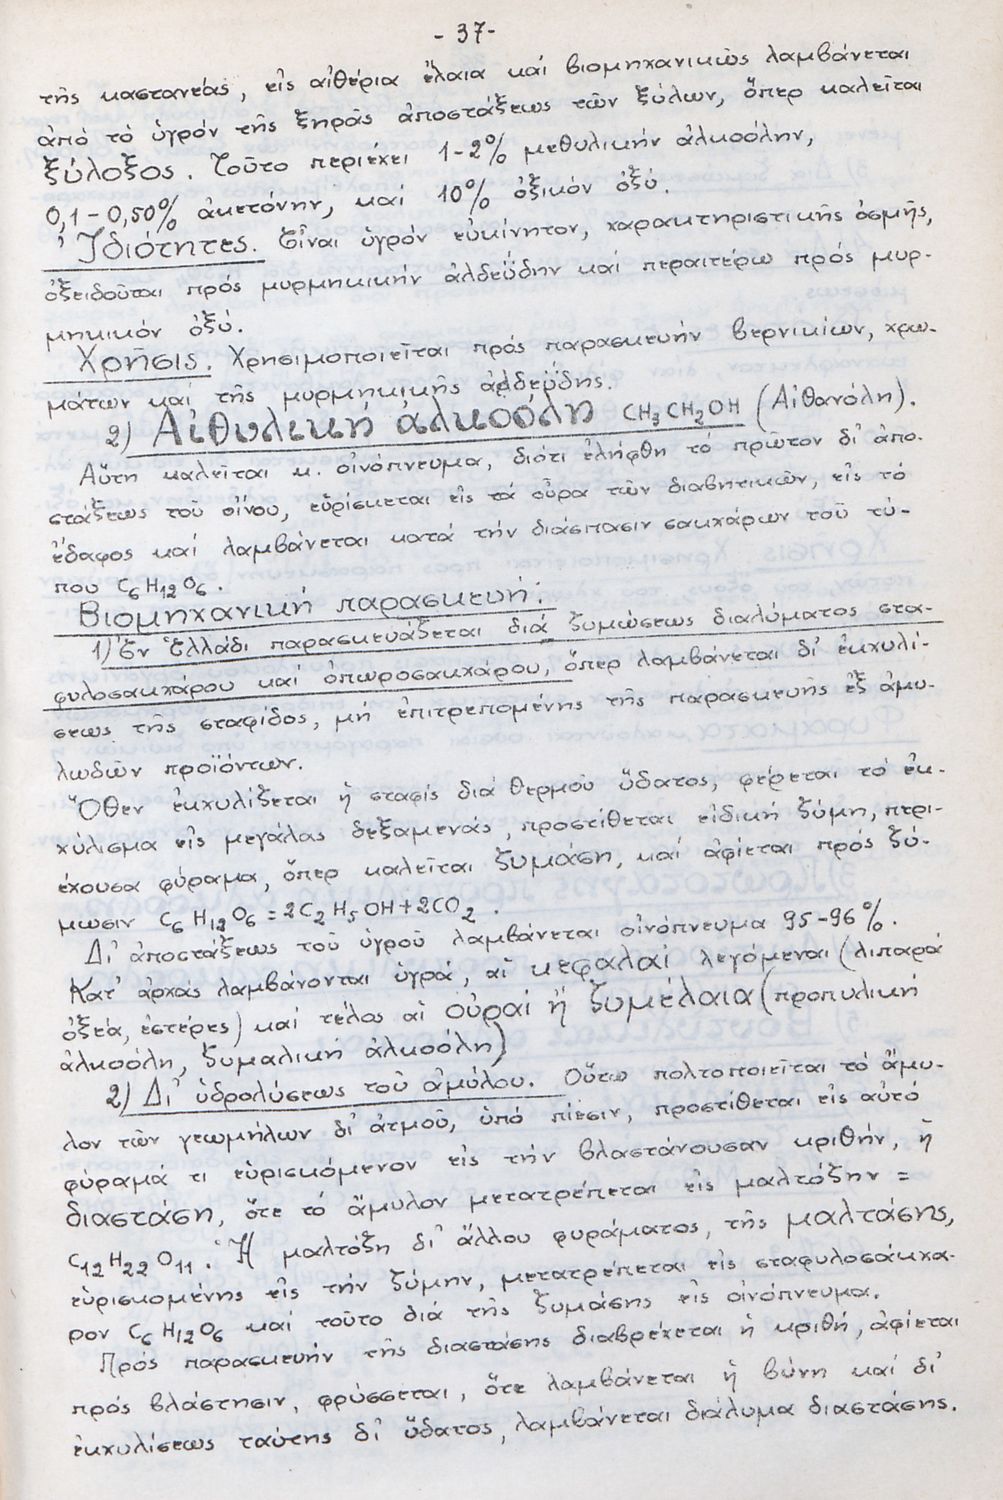 - 37 -
τῆς καστανέας, εἰς αἰθέρια ἔλαια καί βιομηχανικῶς λαμβάνεται
ἀπό τό ὑγρόν τῆς ξηρᾶς ἀποστάξεως τῶν ξύλων, ὅπερ καλεῖται
ξύλοξος. Τοῦτο περιέχει 1-2% μεθυλικήν ἀλκοόλην,
0,1-0,50% ἀκετόνην, καί 10% ὀξικόν ὀξύ.
Ἰδιότητες. Εἶναι ὑγρόν εὐκίνητον, χαρακτηριστικῆς ὀσμῆς,
ὀξειδοῦται πρός μυρμηκικήν ἀλδεΰδην καί περαιτέρω πρός μυρ-
μηκικόν ὀξύ.
Χρῆσις. Χρησιμοποιεῖται πρός παρασκευήν βερνικίων, χρω-
μάτων καί τῆς μυρμηκικῆς ἀλδεΰδης.
2) Αἰθυλική ἀλκοόλη CH3CH2OH (Αἰθανόλη).
Αὕτη καλεῖται κ. οἰνόπνευμα, διότι ἐλήφθη τό πρῶτον δι' ἀπο-
στάξεως τοῦ οἴνου, εὑρίσκεται εἰς τά οὖρα τῶν διαβητικῶν, εἰς τό
ἔδαφος καί λαμβάνεται κατά τήν διάσπασιν σακχάρων τοῦ τύ-
που C6H12O6.
Βιομηχανική παρασκευή:
1) Ἐν Ἑλλάδι παρασκευάζεται διά ζυμώσεως διαλύματος στα-
φυλοσακχάρου καί ὀπωροσακχάρου, ὅπερ λαμβάνεται δι' ἐκχυλί-
σεως τῆς σταφίδος, μή ἐπιτρεπομένης τῆς παρασκευῆς ἐξ ἀμυ-
λωδῶν προϊόντων.
Ὅθεν ἐκχυλίζεται ἡ σταφίς διά θερμοῦ ὕδατος, φέρεται τό ἐκ-
χύλισμα εἰς μεγάλας δεξαμενάς, προστίθεται εἰδική ζύμη, περι-
έχουσα φύραμα, ὅπερ καλεῖται ζυμάση, καί ἀφίεται πρός ζύ-
μωσιν C6H12O6 = 2C2H5OH + 2CO2.
Δι' ἀποστάξεως τοῦ ὑγροῦ λαμβάνεται οἰνόπνευμα 95-96%.
Κατ' ἀρχάς λαμβάνονται ὑγρά, αἱ κεφαλαί λεγόμεναι (λιπαρά
ὀξέα, ἐστέρες) καί τέλος αἱ οὐραί ἤ ζυμέλαια (προπυλική
ἀλκοόλη, ζυμαλική ἀλκοόλη)
2) Δι' ὑδρολύσεως τοῦ ἀμύλου. Οὕτω πολτοποιεῖται τό ἄμυ-
λον τῶν γεωμήλων δι' ἀτμοῦ, ὑπό πίεσιν, προστίθεται εἰς αὐτό
φύραμά τι εὑρισκόμενον εἰς τήν βλαστάνουσαν κριθήν, ἡ
διαστάση, ὅτε τό ἄμυλον μετατρέπεται εἰς μαλτόζην =
C12H22O11. Ἡ μαλτόζη δι' ἄλλου φυράματος, τῆς μαλτάσης,
εὑρισκομένης εἰς τήν ζύμην, μετατρέπεται εἰς σταφυλοσάκχα-
ρον C6H12O6 καί τοῦτο διά τῆς ζυμάσης εἰς οἰνόπνευμα.
Πρός παρασκευήν τῆς διαστάσης διαβρέχεται ἡ κριθή, ἀφίεται
πρός βλάστησιν, φρύσσεται, ὅτε λαμβάνεται ἡ βύνη καί δι'
ἐκχυλίσεως ταύτης δι' ὕδατος, λαμβάνεται διάλυμα διαστάσης.